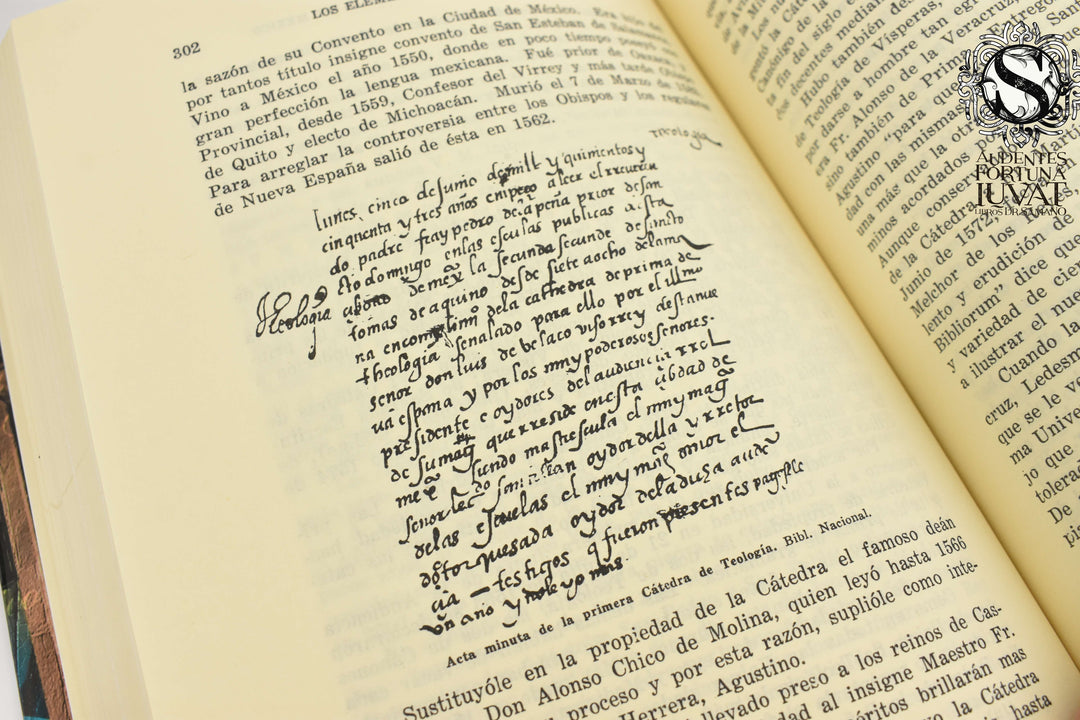 302
LOS ELEM
la sazón de su Convento en la Ciudad de México. Era hijo de
por tantos título insigne convento de San Esteban de Salamanca
Vino a México el año 1550, donde en poco tiempo poseyó con
gran perfección la lengua mexicana. Fué prior de Oaxaca
Provincial, desde 1559, Confesor del Virrey y más tarde Obispo
de Quito y electo de Michoacán. Murió el 7 de Marzo de
Para arreglar la controversia entre los Obispos y los regulares
de Nueva España salió de ésta en 1562.
theologia
lunes, cinco de junio de mill y quinientos y
cinquenta y tres años enpeço a leer el rreueren
do padre fray pedro de la peña prior de san
cto domingo en las esculas publicas desta
Theologia
cibdad de mexº la secunda secunde de sancto
tomas de aquino desde siete a ocho de la ma
na en de la cathedra de prima de
theologia señalado para ello por el illmo
señor don luis de belasco visorrey desta nue
va españa y por los muy poderosos señores
presidente e oydores del audiencia rreal
de su magt que rreside en esta cibdad de
mexº siendo mastrescula el muy magº
señor oydor della y rretor
de las escuelas el muy magº señor el
dotor quesada oydor de la dicha audiē
cia — testigos q fueron presentes
un año y
Acta minuta de la primera Cátedra de Teología. Bibl. Nacional.
Sustituyóle en la propiedad de la Cátedra el famoso deán
Don Alonso Chico de Molina, quien leyó hasta 1566
proceso y por esta razón, suplióle como inte-
Herrera, Agustino.
llevado preso a los reinos de Cas-
dad al insigne Maestro Fr.
éritos brillarán mas
vo la Cátedra
hasta
la fin del siglo
dos decentes median
Hubo también des
de Teología de Vísperas,
por darse a hombre tan egr
era Fr. Alonso de la Veracruz,
sino también "para que
Agustino "para que
dad con las mismas
una más que la otra
minos acordados por
Aunque conser
de la Cátedra
Junio de 1572,
Melchor de los Re
lento y erudición de
Bibliorum" dice que
y variedad de cien
a ilustrar el nue
Cuando la
cruz, Ledesma
que se le v
ma Unive
jo que
tolera
De
pi
S
AUDENTES
FORTUNA
IUVAT
LIBROS DR. SAMANO